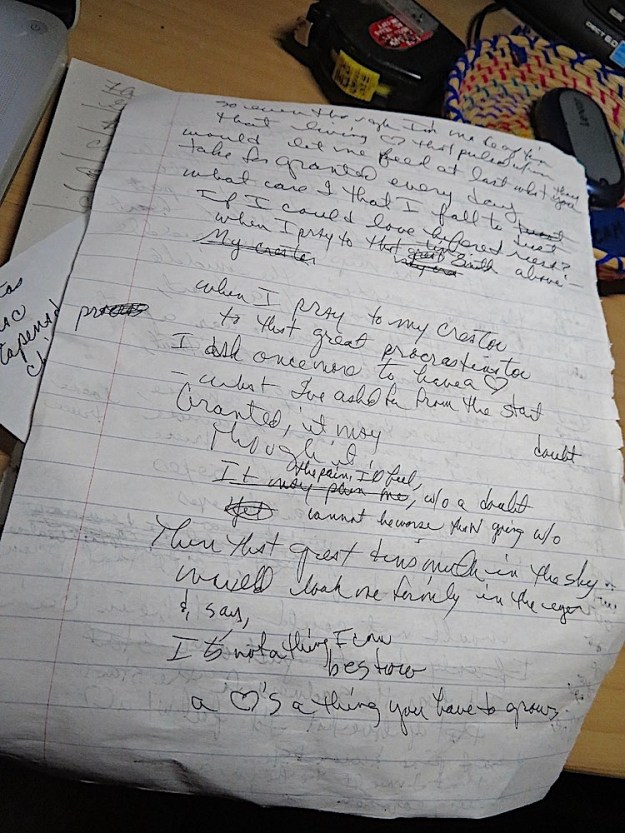 so even though I'm
that living ♡ that pulses
would let me feel at last what they
take for granted every day
what care I that I fall to
If I could love before I rust?
when I pray to that Smith above
My creator
when I pray to my creator
to that great procrastinator
I ask once more to have a ♡
- what I've asked for from the start
Granted, it may
Though it
doubt
the pain, I'd feel,
It may pain me, w/o a doubt
Yet cannot be worse than going w/o
Then that great tinsmith in the sky
would look me firmly in the eye
& say,
It's not a thing I can
bestow
a ♡'s a thing you have to grow